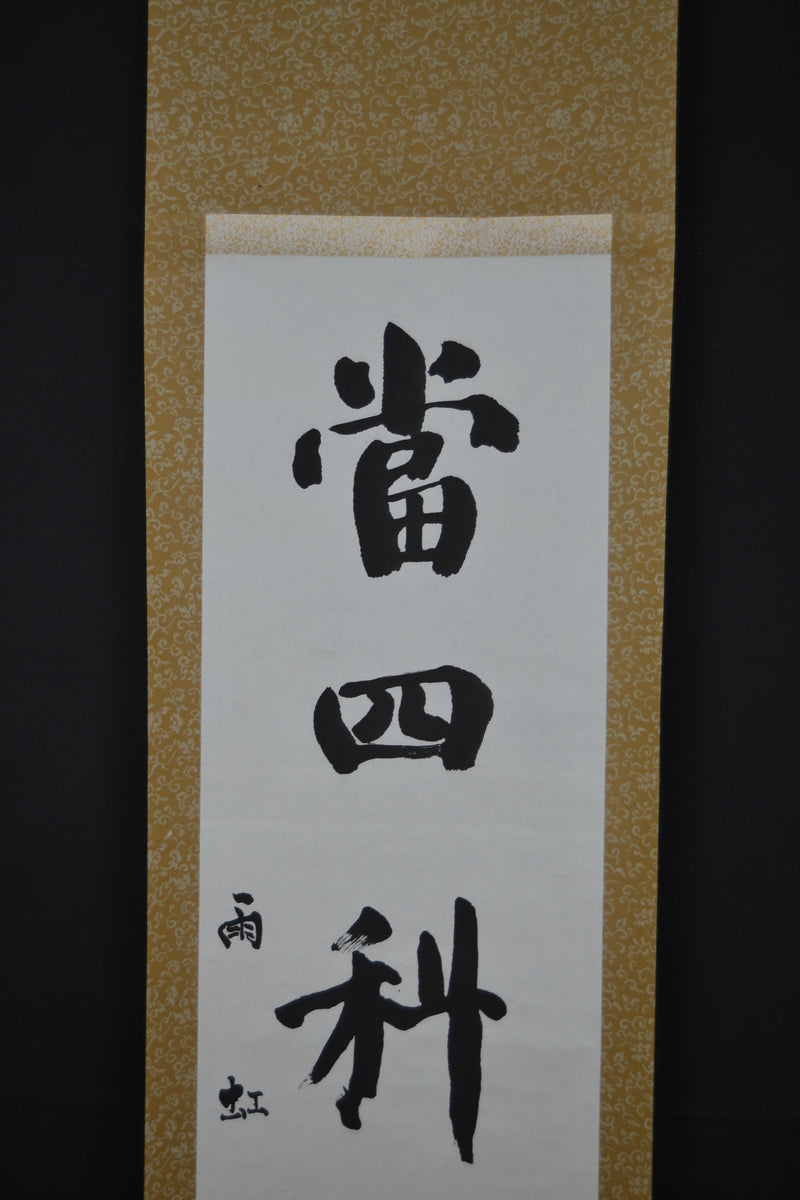 當四科
雨虹